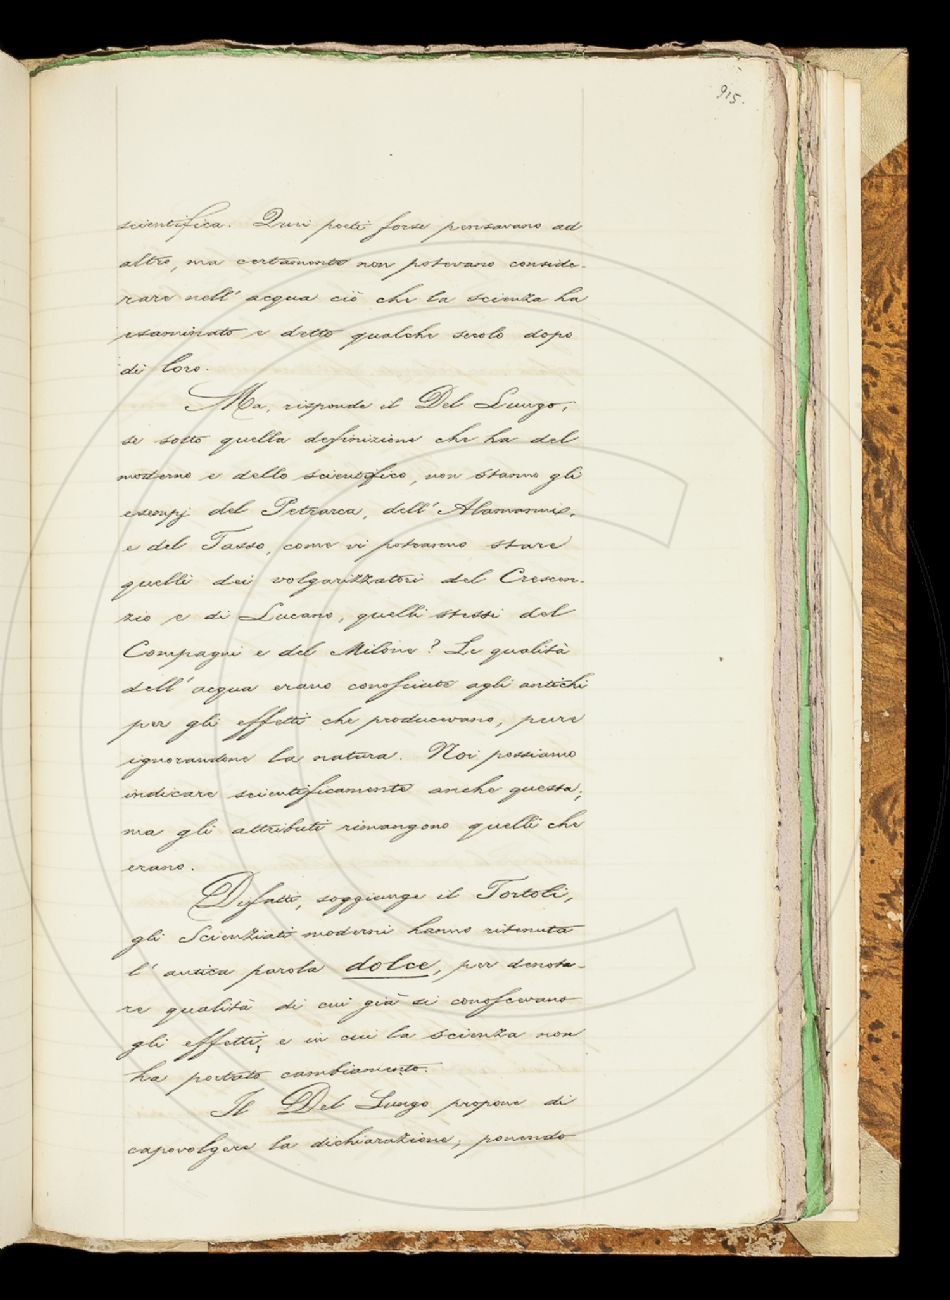 915.
scientifica. Quei poeti forse pensavano ad
altro, ma certamente non potevano conside-
rare nell' acqua ciò che la scienza ha
esaminato e detto qualche secolo dopo
di loro.
Ma, risponde il Del Lungo,
se sotto quella definizione che ha del
moderno e dello scientifico, non stanno gli
esempj del Petrarca, dell' Alamanni,
e del Tasso, come vi potranno stare
quelli dei volgarizzatori del Crescen-
zio e di Lucano, quelli stessi del
Compagni e del Milione? Le qualità
dell' acqua erano conosciute agli antichi
per gli effetti che producevano, pure
ignorandone la natura. Noi possiamo
indicare scientificamente anche questa;
ma gli attributi rimangono quelli che
erano.
Difatti, soggiunge il Tortoli,
gli Scienziati moderni hanno ritenuta
l' antica parola dolce, per denota-
re qualità di cui già si conoscevano
gli effetti, e in cui la scienza non
ha portato cambiamento.
Il Del Lungo propone di
capovolgere la dichiarazione, ponendo